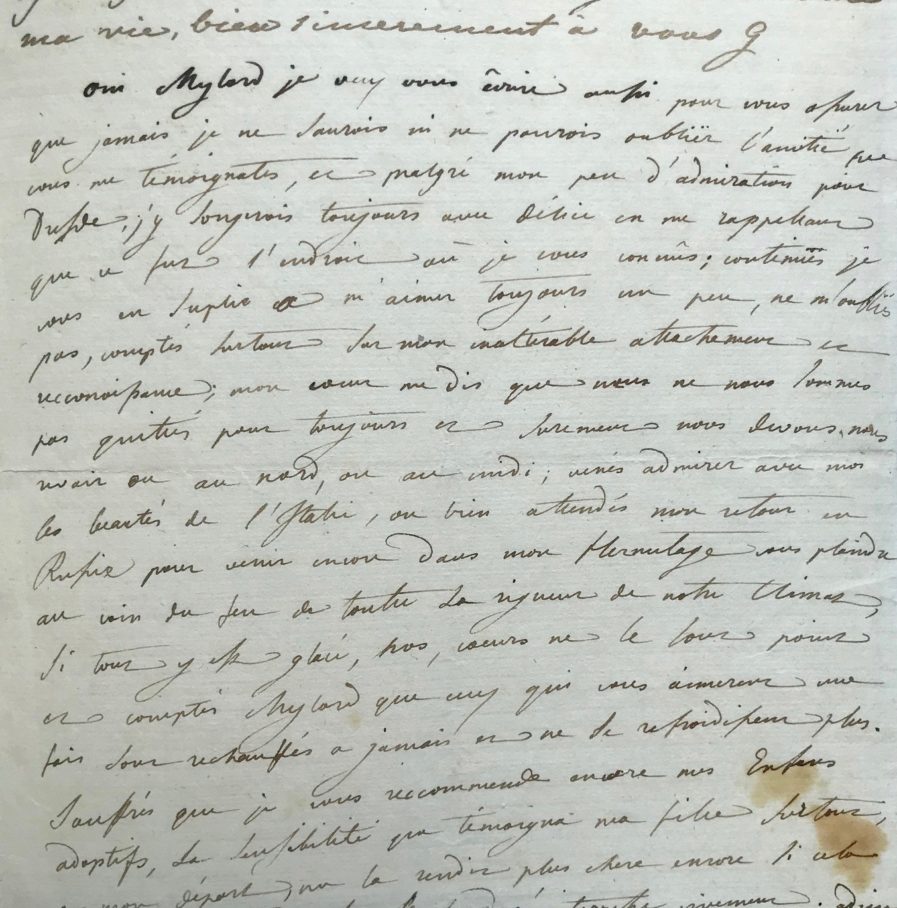 ma vie, bien sincerement à vous G
oui Mylord je vuy vous écrire aussi pour vous assurer
que jamais je ne saurois ni ne pourois oubliër l'amitié que
vous me témoignates, et malgré mon peu d'admiration pour
Dresde, j'y songerois toujours avec délice en me rappellant
que ce fut l'endroit où je vous connûs; continuës je
vous en suplie a m'aimer toujours un peu, ne m'oubliës
pas, comptés surtout sur mon inaltérable attachement et
reconoissance; mon coeur me dis que nous ne nous sommes
pas quittés pour toujours et surement nous devons nous
revoir ou au nord, ou au midi; venés admirer avec moi
les beautés de l'Italie, ou bien attendés mon retour en
Russie pour venir encore dans mon Hermitage vous plaindre
au coin du feu de toutte la rigueur de notre Climat,
si tout y est glacé, nos coeurs ne le sont point
et comptés Mylord que ceuy qui vous aimerent une
fois sont rechauffés a jamais et ne se refroidissent plus.
Souffrés que je vous reccommende encore mes Enfans
adoptifs, la sensibilité que témoigna ma fille surtout,
mon départ, me la rendit plus chere encore si cela
vivement. adieu